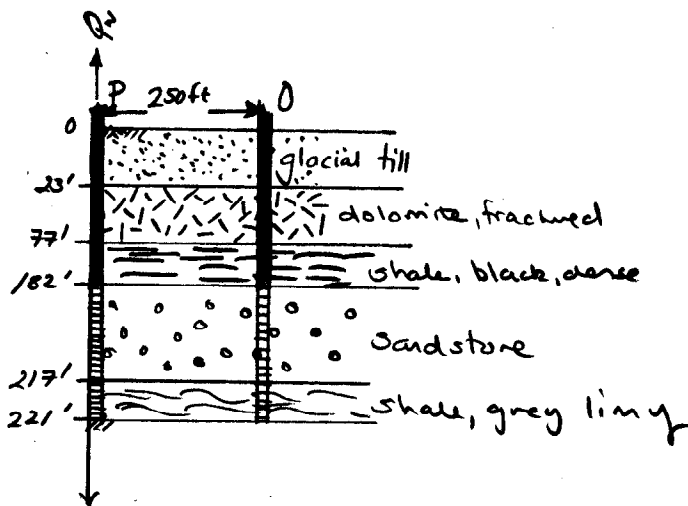 Qw
P 250ft O
0
glacial till
23'
dolomite, fractured
77'
shale, black, dense
182'
sandstone
217'
shale, grey limy
221'